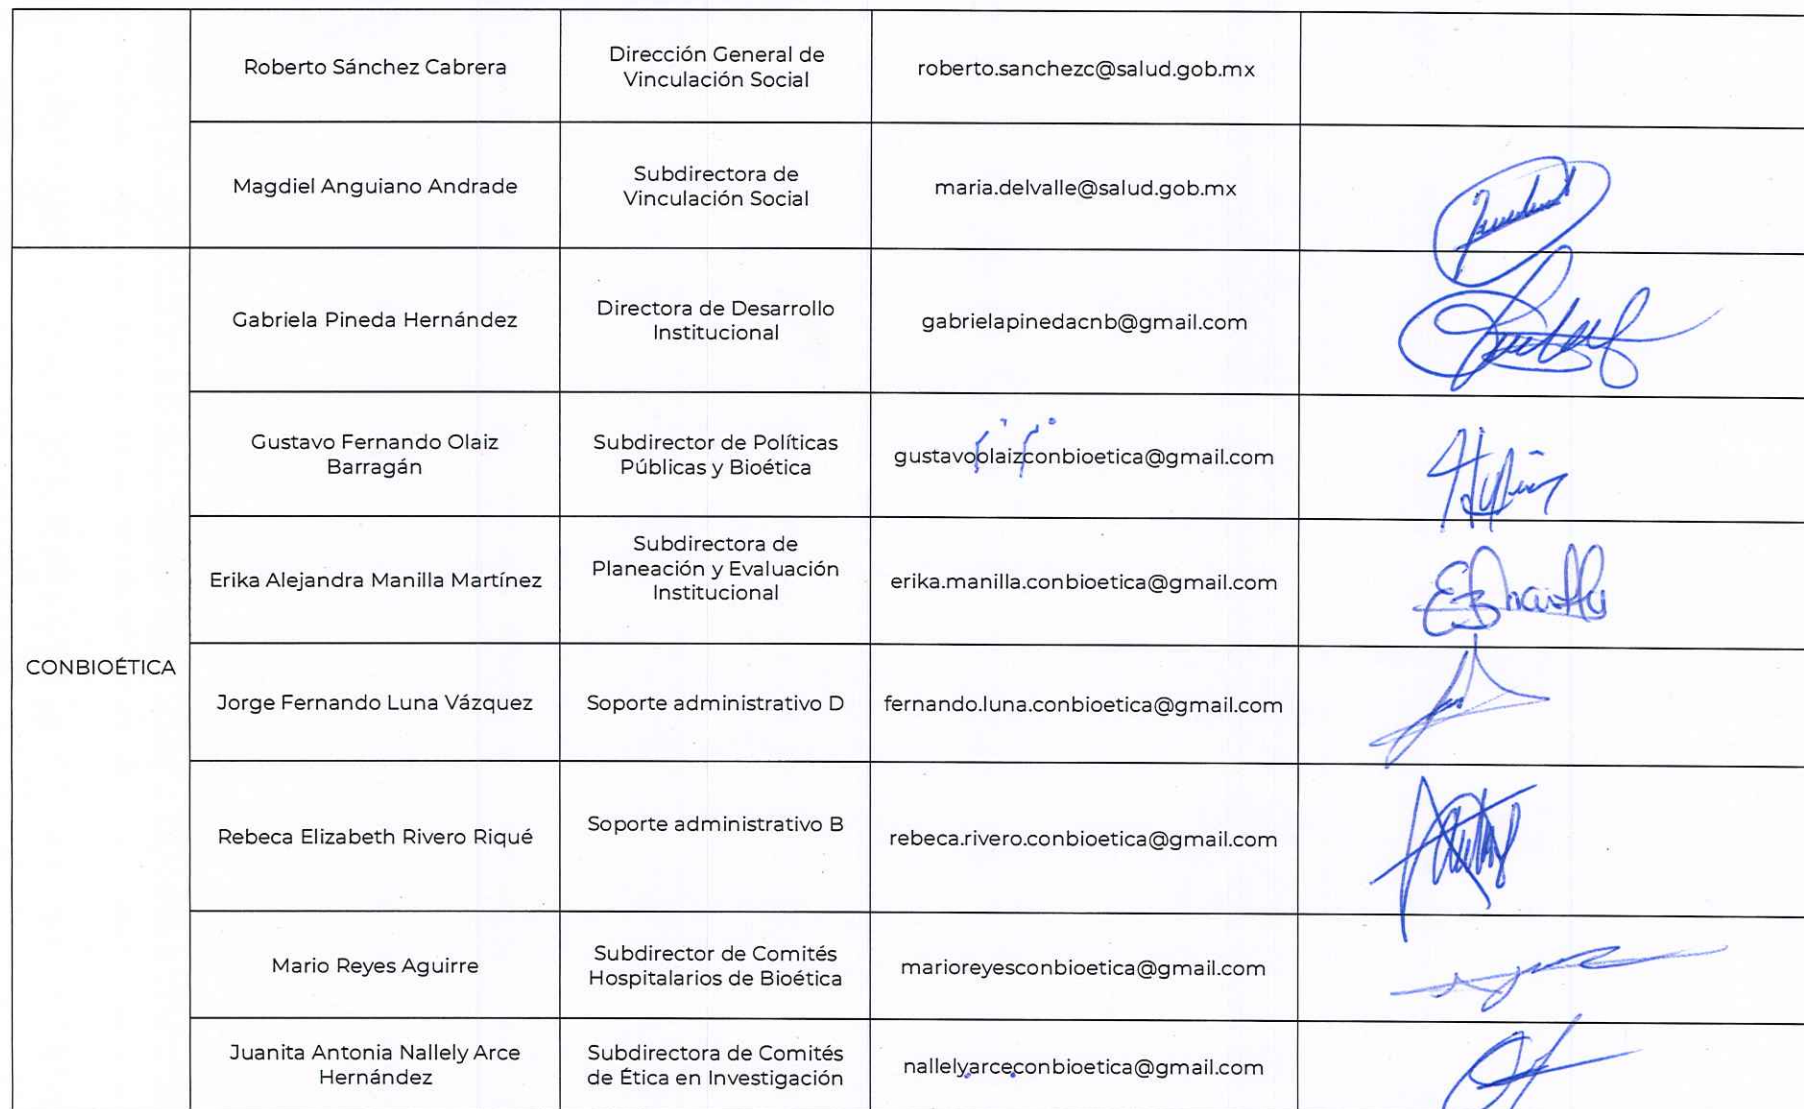 Roberto Sánchez Cabrera
Dirección General de
Vinculación Social
roberto.sanchezc@salud.gob.mx
Magdiel Anguiano Andrade
Subdirectora de
Vinculación Social
maria.delvalle@salud.gob.mx
CONBIOÉTICA
Gabriela Pineda Hernández
Directora de Desarrollo
Institucional
gabrielapinedacnb@gmail.com
Gustavo Fernando Olaiz
Barragán
Subdirector de Políticas
Públicas y Bioética
gustavoolaizconbioetica@gmail.com
Erika Alejandra Manilla Martínez
Subdirectora de
Planeación y Evaluación
Institucional
erika.manilla.conbioetica@gmail.com
Jorge Fernando Luna Vázquez
Soporte administrativo D
fernando.luna.conbioetica@gmail.com
Rebeca Elizabeth Rivero Riqué
Soporte administrativo B
rebeca.rivero.conbioetica@gmail.com
Mario Reyes Aguirre
Subdirector de Comités
Hospitalarios de Bioética
marioreyesconbioetica@gmail.com
Juanita Antonia Nallely Arce
Hernández
Subdirectora de Comités
de Ética en Investigación
nallelyarceconbioetica@gmail.com